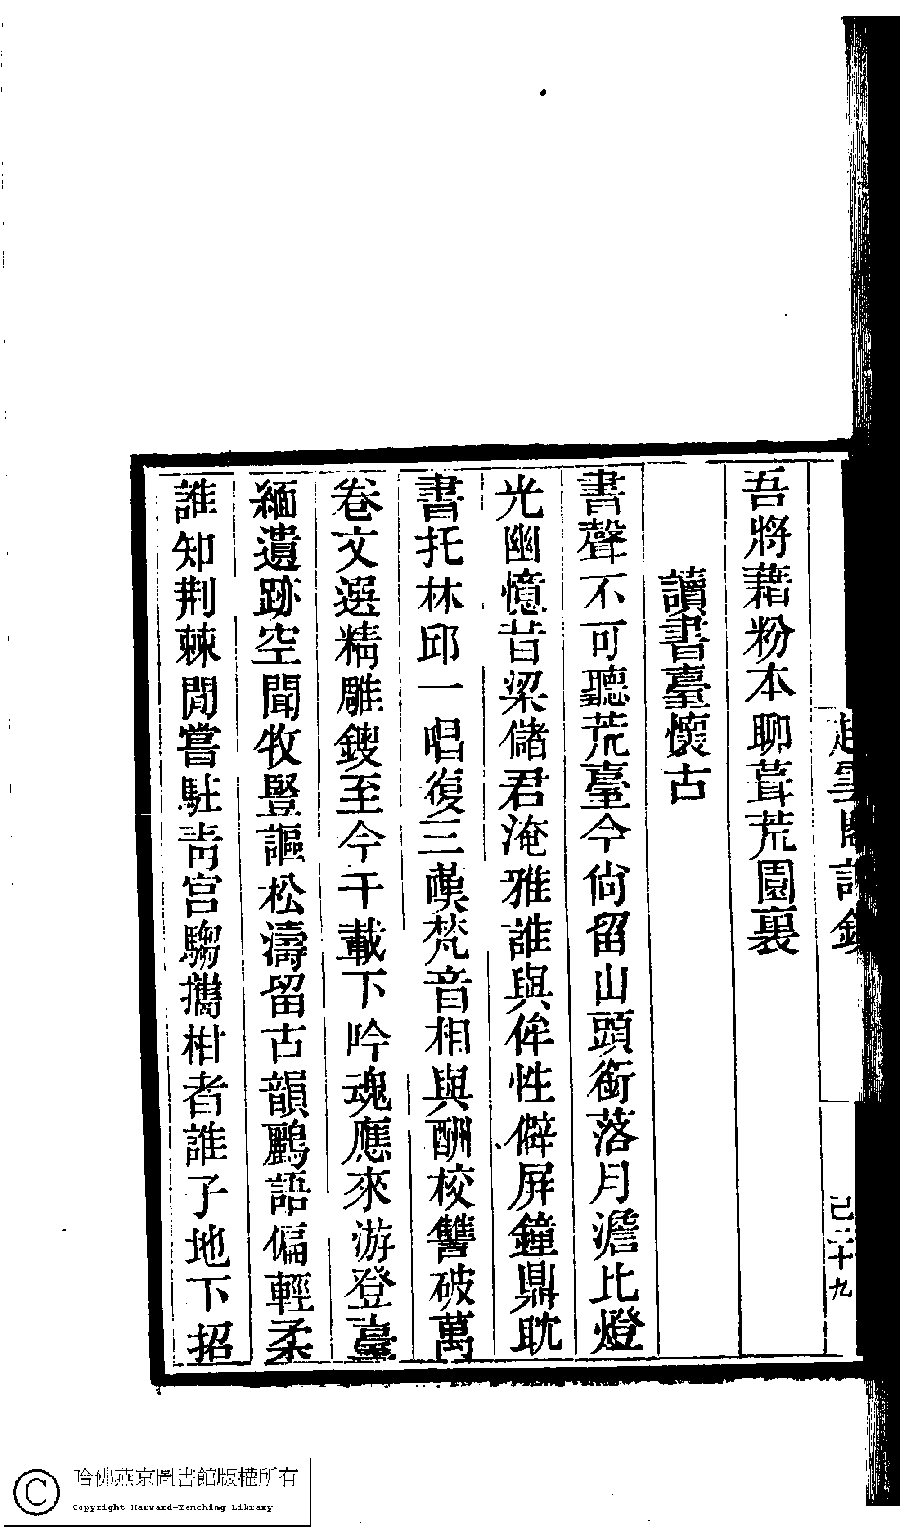 吾將藉粉本聊葺荒園裏
讀書臺懷古
書聲不可聽荒臺今尙留山頭銜落月澹比燈
光幽憶昔梁儲君淹雅誰與侔性僻屏鐘鼎耽
書托林邱一唱復三嘆梵音相與酬校讐破萬
卷文選精雕鎪至今千載下吟魂應來游登臺
緬遺跡空聞牧豎謳松濤留古韻鸝語偏輕柔
誰知荆棘閒嘗駐靑宮騶攜柑者誰子地下招
己二十九
哈佛燕京圖書館版權所有
Copyright Harvard-Yenching Library